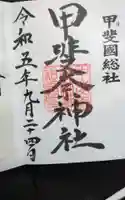 甲斐國総社
甲斐奈神社
令和五年九月二十四日